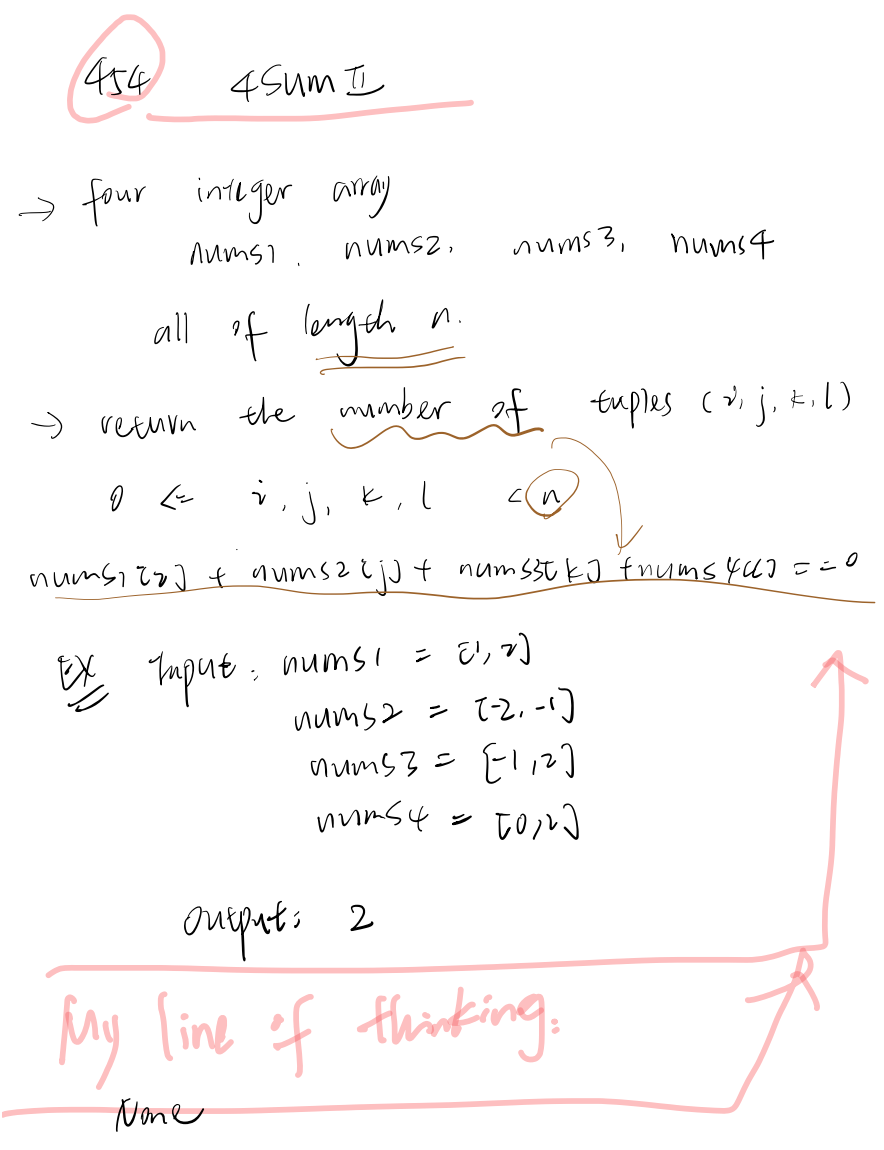 454 4Sum II
→ four integer array
nums1, nums2, nums3, nums4
all of length n.
→ return the number of tuples (i, j, k, l)
0 <= i, j, k, l < n
nums1[i] + nums2[j] + nums3[k] + nums4[l] == 0
EX Input: nums1 = [1, 2]
nums2 = [-2, -1]
nums3 = [-1, 2]
nums4 = [0, 2]
Output: 2
My line of thinking:
None